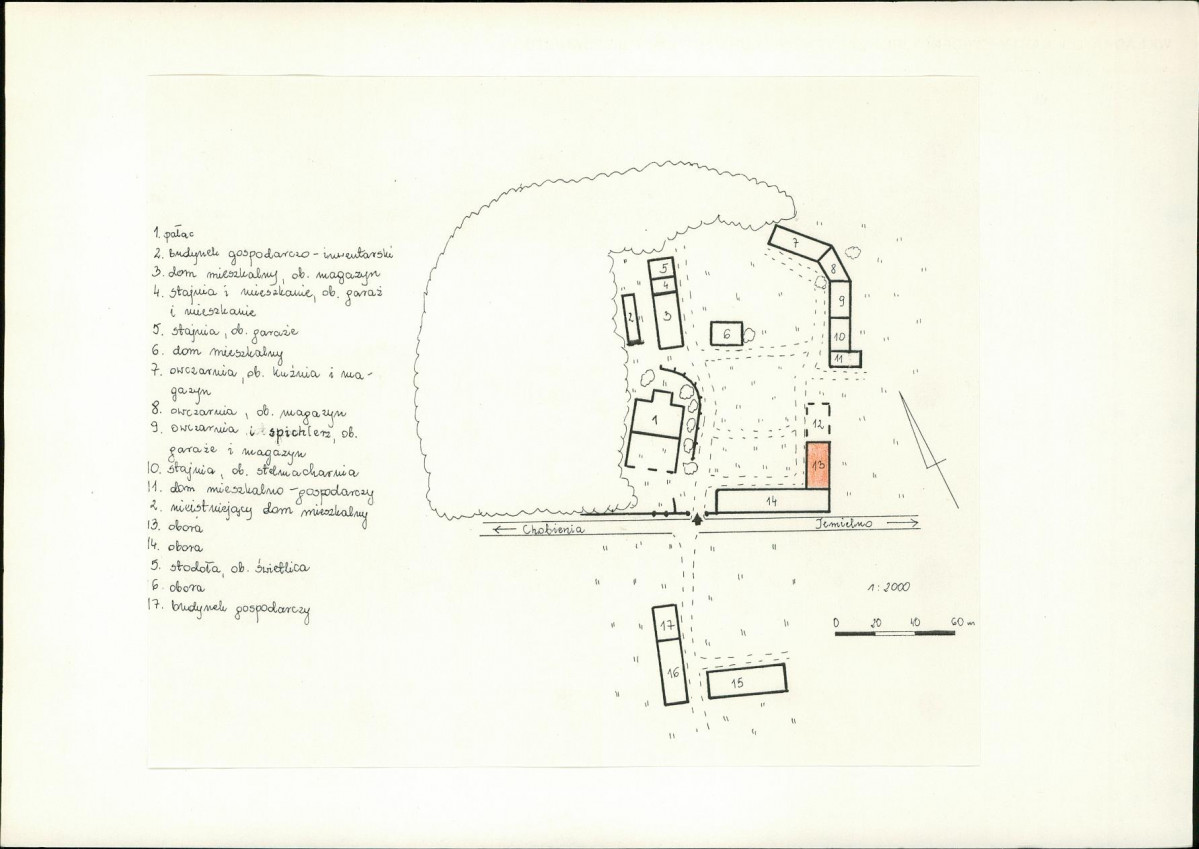 1. pałac
2. budynek gospodarczo-inwentarski
3. dom mieszkalny, ob. magazyn
4. stajnia i mieszkanie, ob. garaż
i mieszkanie
5. stajnia, ob. garaże
6. dom mieszkalny
7. owczarnia, ob. kuźnia i ma-
gazyn
8. owczarnia, ob. magazyn
9. owczarnia i spichlerz, ob.
garaże i magazyn
10. stajnia, ob. stelmacharnia
11. dom mieszkalno-gospodarczy
2. nieistniejący dom mieszkalny
13. obora
14. obora
5. stodoła, ob. świetlica
6. obora
17. budynek gospodarczy
7
8
5
4
9
2
3
6
10
11
1
12
13
14
← Chobienia
Jemielno →
1:2000
0 20 40 60 m
17
16
15